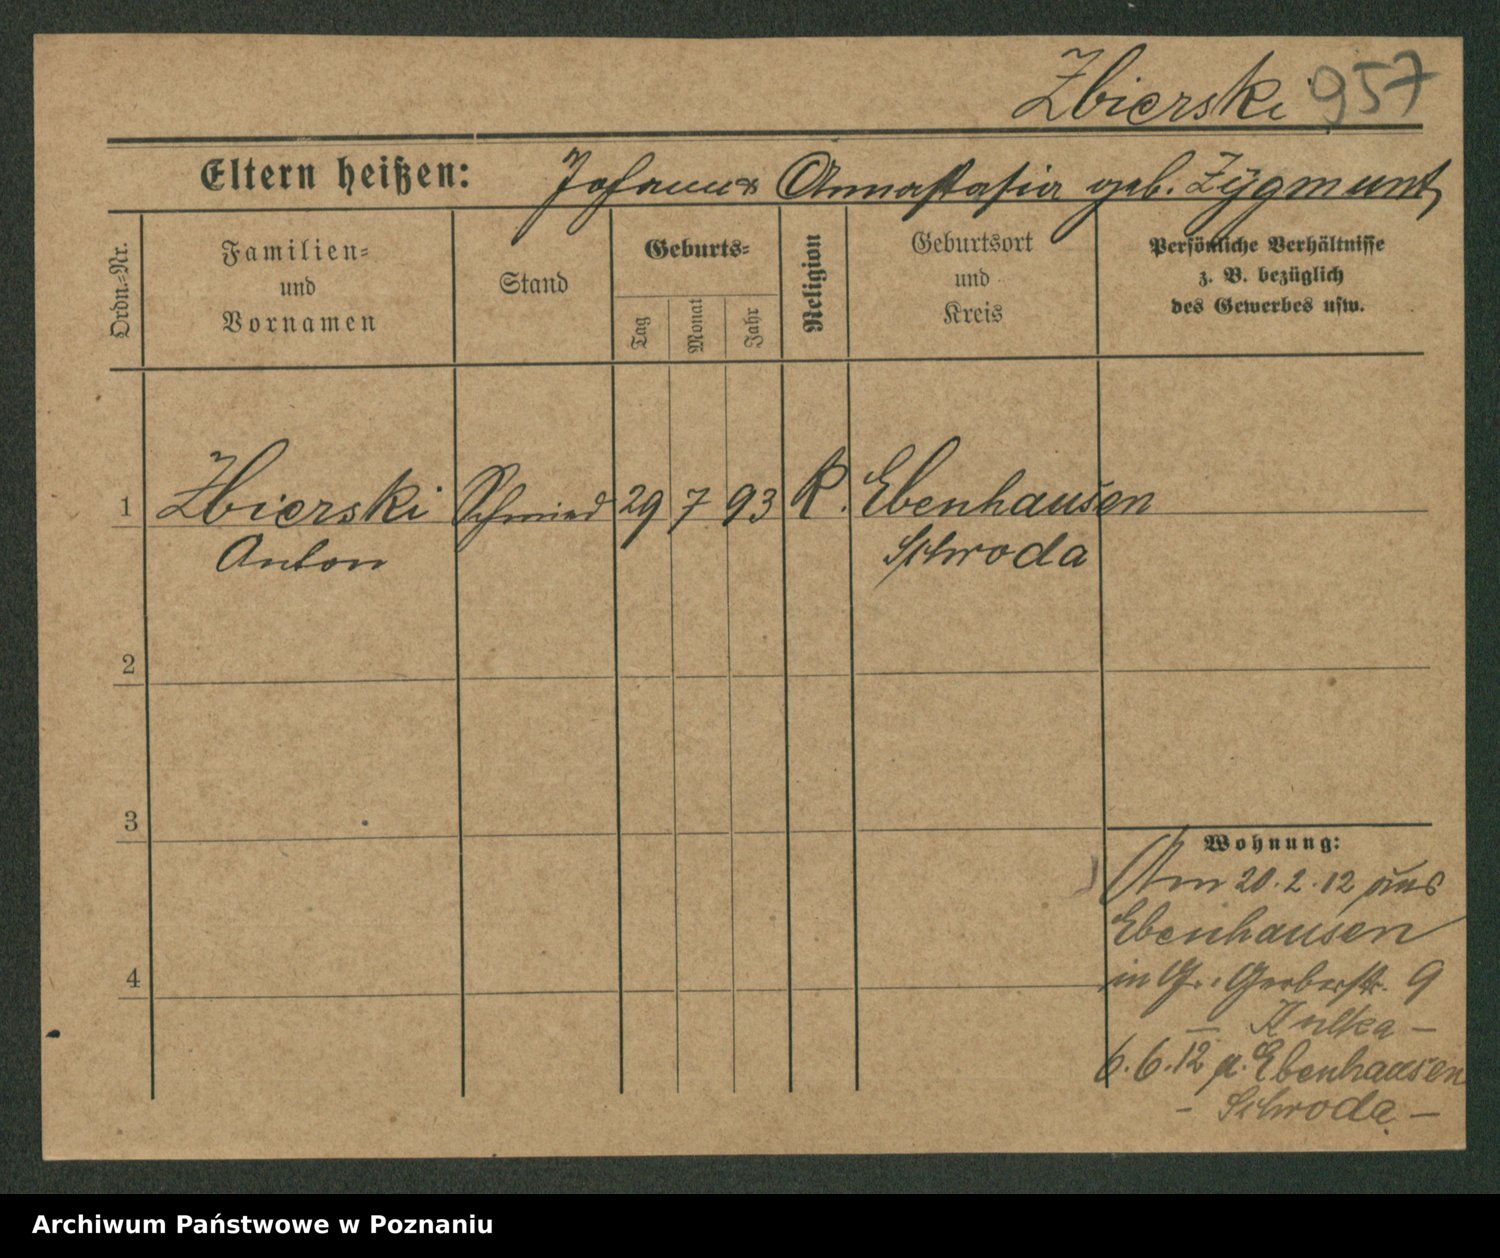 Zbierski 957
Eltern heißen: Johann & Annastasia geb. Zÿgmunt
Ordn.=Nr.
Familien=
und
Vornamen
Stand
Geburts=
Tag
Monat
Jahr
Religion
Geburtsort
und
Kreis
Persönliche Verhältnisse
z. B. bezüglich
des Gewerbes usw.
1 Zbierski Schmied 29 7 93 K. Ebenhausen
Anton Schroda
2
3
Wohnung:
Am 20.2.12 aus
Ebenhausen
4
in Gr. Gerberstr. 9
– Kulka –
6.6.12 n. Ebenhausen
– Schroda –
Archiwum Państwowe w Poznaniu